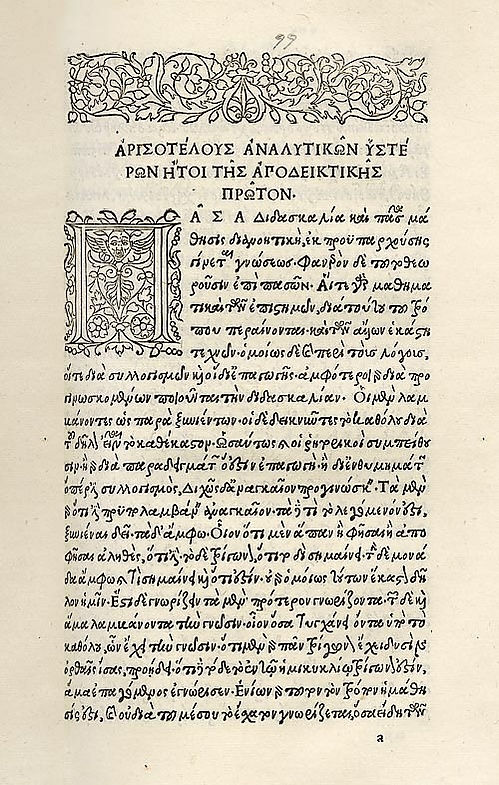 99
ἈΡΙΣΟΤΕΛΟΥΣ ἈΝΑΛΥΤΙΚΩ͂Ν ὙΣΤΕ
ΡΩΝ ἬΤΟΙ ΤΗ͂Σ ἈΠΟΔΕΙΚΤΙΚΗ͂Σ
ΠΡΩ͂ΤΟΝ·
ΠᾶΣΑ Διδασκαλία καὶ πᾶσα μά
θησις διανοητικὴ, ἐκ προϋπαρχούσης
γίνεται γνώσεως· Φανερὸν δὲ τοῦτο θεω
ροῦσιν ἐπὶ πασῶν· Αἵτε γὰρ μαθημα
τικαὶ τῶν ἐπιστημῶν, διὰ τούτου τοῦ τρό
που περαίνονται· καὶ τῶν ἄλλων ἑκάστη
τεχνῶν· ὁμοίως δὲ καὶ περὶ τοὺς λόγους,
οἵτε διὰ συλλογισμῶν καὶ οἱ δι' ἐπαγωγῆς· ἀμφότεροι γὰρ διὰ προ
γινωσκομένων ποιοῦνται τὴν διδασκαλίαν· Οἱ μὲν λαμ
βάνοντες ὡς παρὰ ξυνιέντων· οἱ δὲ δεικνύντες τὸ καθόλου διὰ
τοῦ δῆλον εἶναι τὸ καθέκαστον· Ὡσαύτως καὶ οἱ ῥητορικοὶ συμπείθου
σιν· ἢ γὰρ διὰ παραδειγμάτων ὅ ἐστιν ἐπαγωγὴ· ἢ δι' ἐνθυμημάτων
ὅπερ ἐστὶ συλλογισμός, Διχῶς δ' ἀναγκαῖον προγινώσκειν· Τὰ μὲν
γὰρ ὅτι ἐστὶ προϋπολαμβάνειν ἀναγκαῖον· τὰ δὲ τί τὸ λεγόμενόν ἐστι,
ξυνιέναι δεῖ· τὰ δ' ἄμφω· Οἷον ὅτι μὲν ἅπαν ἢ φῆσαι ἢ ἀπο
φῆσαι ἀληθὲς, ὅτι ἐστὶ· τὸ δὲ τρίγωνον, ὅτι τοδὶ σημαίνει· τὴν δὲ μονά
δα ἄμφω καὶ τί σημαίνει καὶ ὅτι ἔστιν· οὐ γὰρ ὁμοίως τούτων ἕκαστον δῆ
λον ἡμῖν· Ἔστι δὲ γνωρίζειν τὰ μὲν πρότερον γνωρίζοντα· τῶν δὲ καὶ
ἅμα λαμβάνοντα τὴν γνῶσιν· οἷον ὅσα τυγχάνει ὄντα ὑπὸ τὸ
καθόλου, ὧν ἔχει τὴν γνῶσιν· ὅτι μὲν γὰρ πᾶν τρίγωνον ἔχει δυσὶν
ὀρθαῖς ἴσας, προῄδει· ὅτι δὲ τόδε τὸ ἐν τῷ ἡμικυκλίῳ τρίγωνόν ἐστιν,
ἅμα ἐπαγόμενος ἐγνώρισεν· Ἐνίων γὰρ τοῦτον τὸν τρόπον ἡ μάθη
σίς ἐστι, καὶ οὐ διὰ τοῦ μέσου τὸ ἔσχατον γνωρίζεται, ὅσα εἴδη τῶν
a